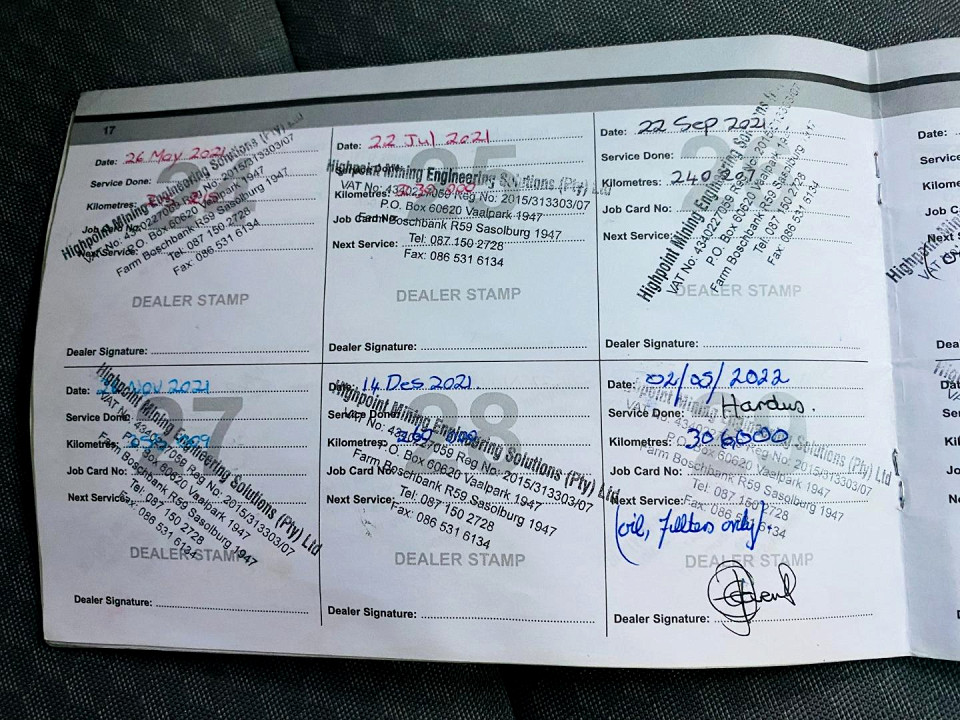 17
Date: 26 May 2021
Service Done:
Kilometres:
Job Card No:
Next Service:
Highpoint Mining Engineering Solutions (Pty) Ltd
VAT No: 4340227059 Reg No: 2015/313303/07
P.O. Box 60620 Vaalpark 1947
Farm Boschbank R59 Sasolburg 1947
Tel: 087 150 2728
Fax: 086 531 6134
DEALER STAMP
Dealer Signature:
25
Date: 22 Jul 2021
Service Done:
Kilometres:
Job Card No:
Next Service:
Highpoint Mining Engineering Solutions (Pty) Ltd
VAT No: 4340227059 Reg No: 2015/313303/07
P.O. Box 60620 Vaalpark 1947
Farm Boschbank R59 Sasolburg 1947
Tel: 087 150 2728
Fax: 086 531 6134
DEALER STAMP
Dealer Signature:
26
Date: 22 Sep 2021
Service Done:
Kilometres: 240 207
Job Card No:
Next Service:
Highpoint Mining Engineering Solutions
VAT No: 4340227059 Reg No: 2015/313303/07
P.O. Box 60620 Vaalpark
Farm Boschbank R59 Sasolburg
Tel: 087 150 2728
Fax: 086 531 6134
DEALER STAMP
Dealer Signature:
27
Date: Nov 2021
Service Done:
Kilometres:
Job Card No:
Next Service:
Highpoint Mining Engineering Solutions (Pty) Ltd
VAT No: 4340227059 Reg No: 2015/313303/07
P.O. Box 60620 Vaalpark 1947
Farm Boschbank R59 Sasolburg 1947
Tel: 087 150 2728
Fax: 086 531 6134
DEALER STAMP
Dealer Signature:
28
Date: 14 Des 2021.
Service Done:
Kilometres:
Job Card No:
Next Service:
Highpoint Mining Engineering Solutions (Pty) Ltd
VAT No: 4340227059 Reg No: 2015/313303/07
P.O. Box 60620 Vaalpark 1947
Farm Boschbank R59 Sasolburg 1947
Tel: 087 150 2728
Fax: 086 531 6134
DEALER STAMP
Dealer Signature:
Date: 02/05/2022
Service Done: Hardus.
Kilometres: 306,000
Job Card No:
Next Service:
(oil, filters only).
Highpoint Mining Engineering Solutions (Pty) Ltd
VAT No: 4340227059 Reg No: 2015/313303/07
P.O. Box 60620 Vaalpark 1947
Farm Boschbank R59 Sasolburg 1947
Tel: 087 150 2728
Fax: 086 531 6134
DEALER STAMP
Dealer Signature:
Date: